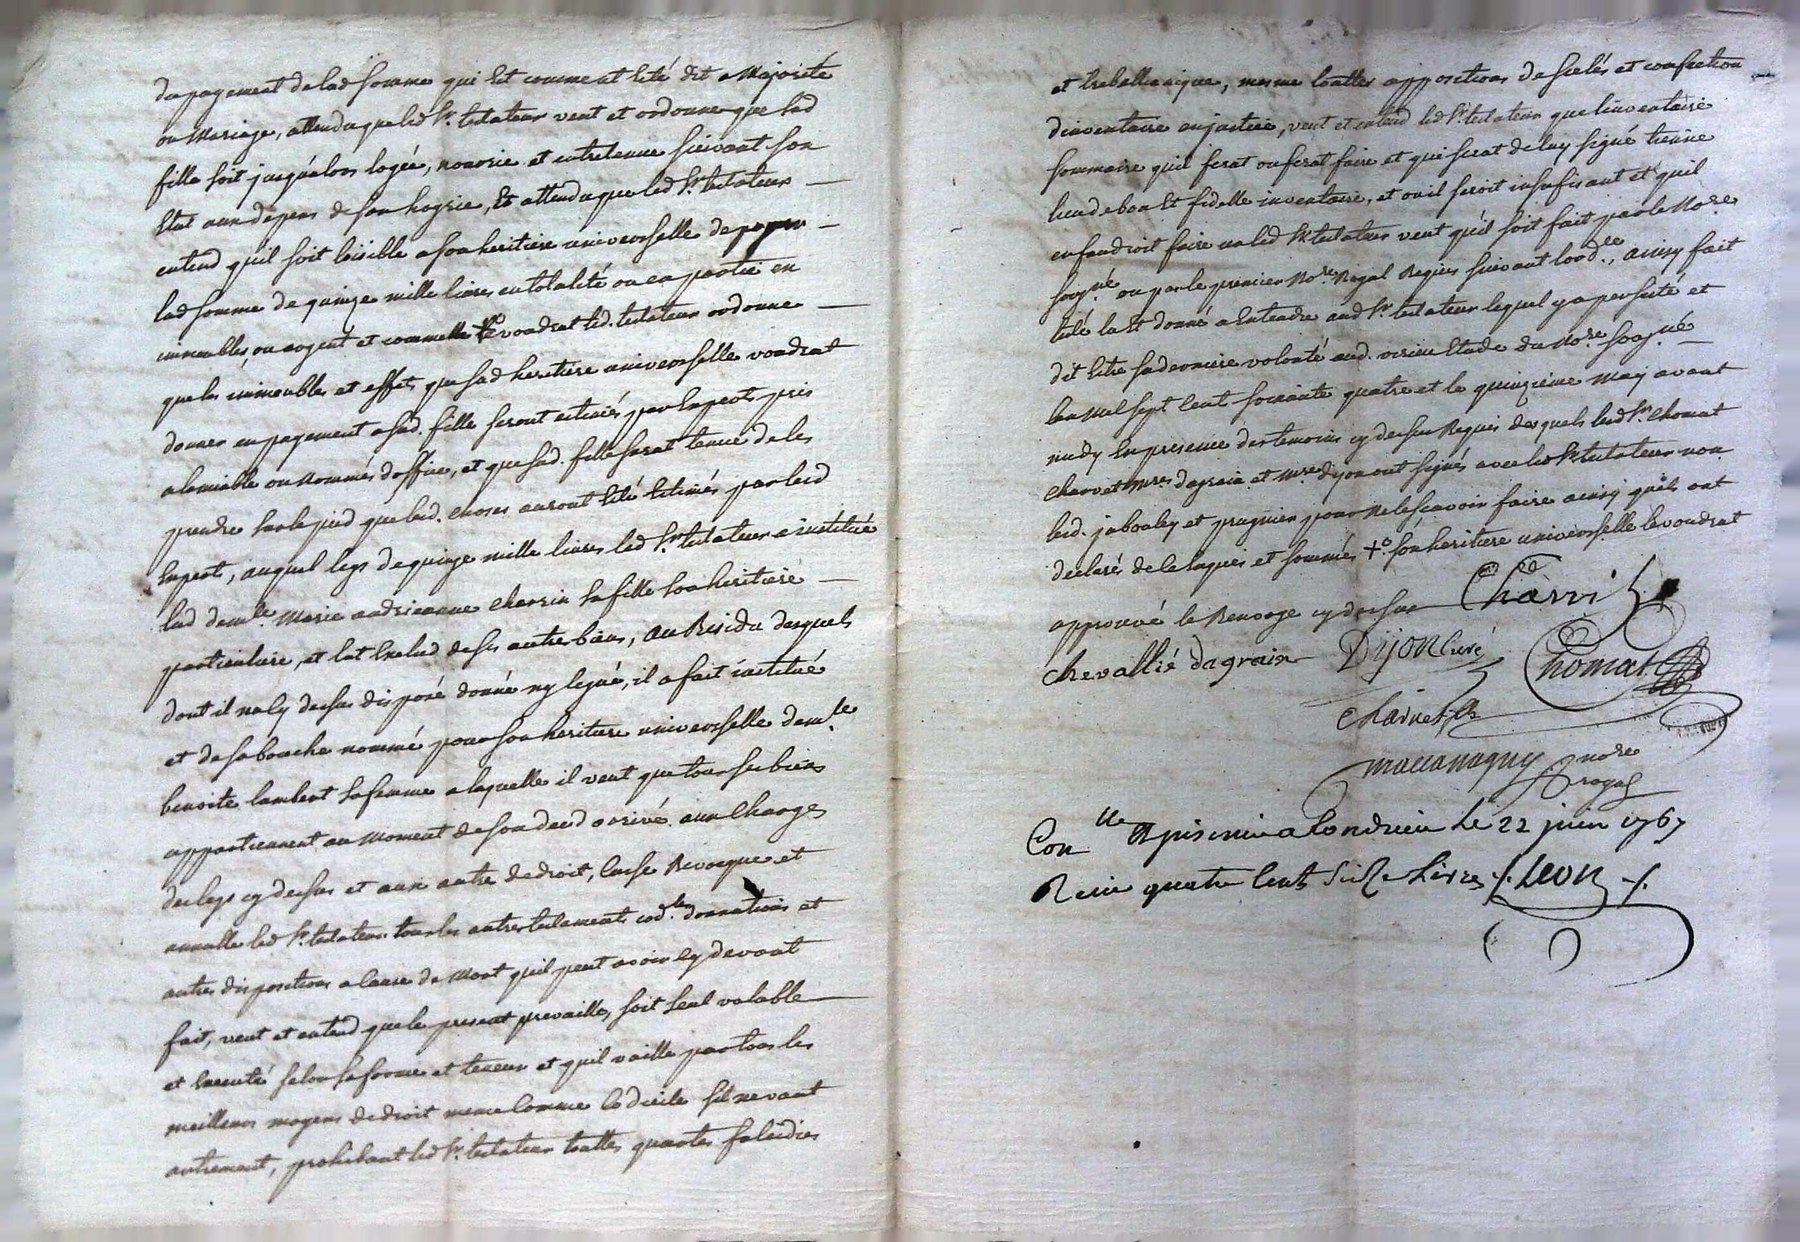 du payement de lad somme qui est comme at eté dit a Majorité
ou Mariage, attendu que led Sr. testateur veut et ordonne que sad
fille soit jusqu'alors logée, nourrie et entretenue suivant son
Etat aux depens de son hoyrie, Et attendu que led Sr. testateur
entend qu'il soit loisible a son heritiere universelle de payer
lad somme de quinze mille livres en totalité ou en partie en
immeubles, ou argent et comme elle voudrat led. testateur ordonne
que les immeubles et effets que sad heritiere universelle voudrat
donner en payement a sad. fille seront estimés par Experts pris
a lamiable ou nommés d'office, et que sad. fille serat tenue de les
prendre sur le pied que lesd. choses auront Eté Estimés par lesd
Experts, auquel legs de quinze mille livres led Sr. testateur a institué
lad demlle Marie andrieanne charvin sa fille son heritiere
particuliere, et lat Exclud de ses autres biens, Au Residu desquels
dont il na cy dessus disposé donné ny legué, il a fait institué
et de sa bouche nommé pour son heritiere universelle demlle.
benoite lambert sa femme a laquelle il veut que tous ses biens
appartiennent au moment de son deced arrivé aux Charges
des legs cy dessus et aux autre de droit, Casse Revoque et
annulle led Sr. testateur tous les autres testaments cod.les donnations et
autres dispositions a cause de Mort quil peut avoir cy devant
fait, veut et entend que le present prevaille, soit seul valable
et Executé selon sa forme et teneur et quil vaille par tous les
meilleurs moyens de droit meme Comme Codicile sil ne vaut
autrement, prohibant led Sr. testateur touttes quartes falcidies
et trebellianique, mesme touttes appositions de scelés et confection
dinventaire en justice, veut et entend led Sr. testateur que linventaire
sommaire quil ferat ou ferat faire et qui serat de luy signé tienne
lieu de bon Et fidelle inventaire, et ou il seroit insufisant et quil
en faudroit faire un led Sr. testateur veut qu'il soit fait par le No.re
soug.né ou par le premier No.re Royal Requis suivant lord.ce, ainsy fait
leu la Et donné a Entendre aud Sr. testateur lequel y a persisté et
dit Estre sa derniere volonté aud. Etude du No.re soug.né
lan Mil sept Cent soixante quatre et le quinzieme May avant
midy En presence des temoins cy dessus Requis desquels lesd Srs. Chomat
charvet mres. dagrain et mre. dyon ont signés avec led Sr. testateur non
lesd. jaboulley et prugnier pour ne le scavoir faire ainsy quils ont
declarés de ce Enquis et sommés +o. son heritiere universelle le voudrat
approuvé le Renvoye cy dessus Charvin
Chevallié dagrain Dijon Curé Chomat
Charvet
maccanagny nore
royal
Con.lle & insinué a Condrieu le 22 juin 1767
Recu quatre Cents Livres ./. Leon ./.